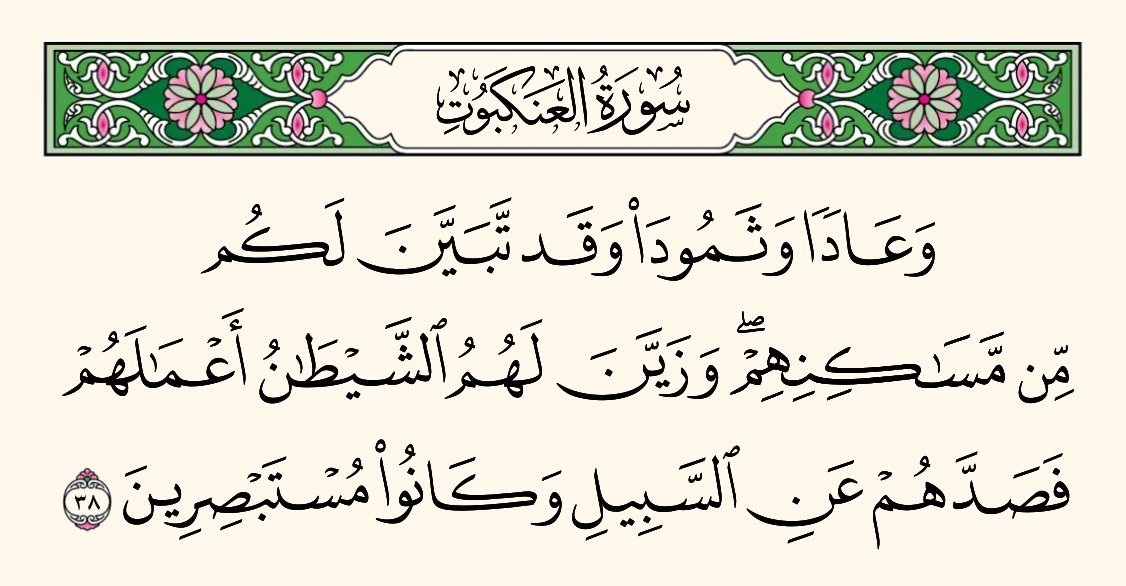 سُورَةُ العَنكَبُوتِ
وَعَادًا وَثَمُودَا۟ وَقَد تَّبَيَّنَ لَكُم
مِّن مَّسَـٰكِنِهِمْ ۖ وَزَيَّنَ لَهُمُ ٱلشَّيْطَـٰنُ أَعْمَـٰلَهُمْ
فَصَدَّهُمْ عَنِ ٱلسَّبِيلِ وَكَانُوا۟ مُسْتَبْصِرِينَ ٣٨